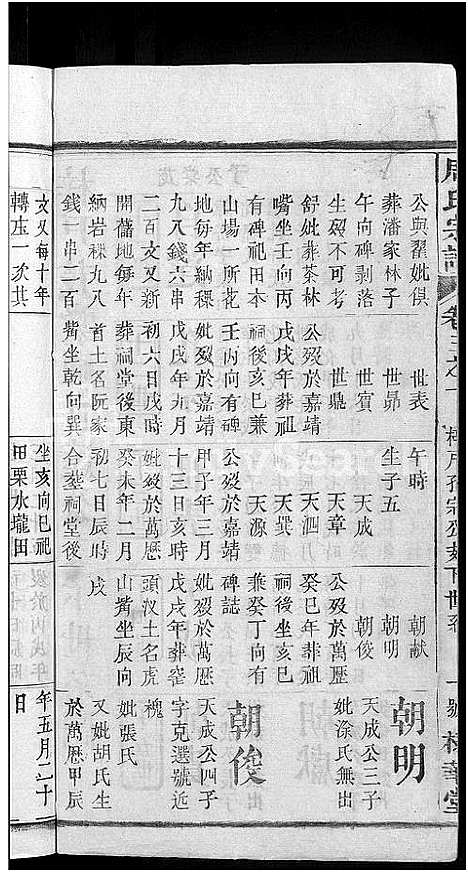 周氏宗譜
卷三之一
公與翟妣俱
葬潘家林子
午向碑剥落
生歿不可考
舒妣葬茶林
嘴坐壬向丙
有碑祀田本
山場一所花
地每年納稞
九八錢六串
二百文又新
開藩地每年
納岩稞九八
錢一串二百
文又每十年
轉庄一次其
世表
世昴
世賓
世鼎
公歿於嘉靖
戊戌年葬祖
祠後亥巳兼
壬丙向有碑
妣歿於嘉靖
戊戌年九月
初六日戌時
葬祠堂後東
首土名阮家
嘴坐乾向巽
午時
生子五
天成
天章
天泗
天巽
天源
公歿於嘉靖
甲子年三月
十三日亥時
妣歿於萬歷
癸未年二月
初七日辰時
合塟祠堂後
坐亥向巳祀
田栗水壠田
朝獻
朝明
朝俊
公歿於萬歷
癸巳年葬祖
祠後坐亥巳
兼癸丁向有
碑誌
妣歿於萬歷
戊戌年葬窑
頭汊土名虎
山嘴坐辰向
戌
朝明
天成公三子
妣涂氏無出
朝俊
天成公四子
字克選號近
槐
妣張氏
又妣胡氏生
於萬歷甲辰
年五月二十
日